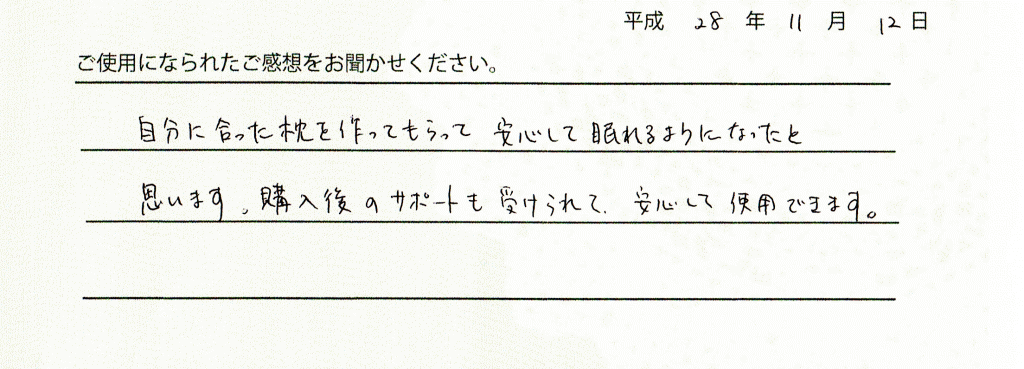 平成 28 年 11 月 12 日
ご使用になられたご感想をお聞かせください。
自分に合った枕を作ってもらって 安心して眠れるようになったと
思います。購入後のサポートも受けられて、安心して使用できます。